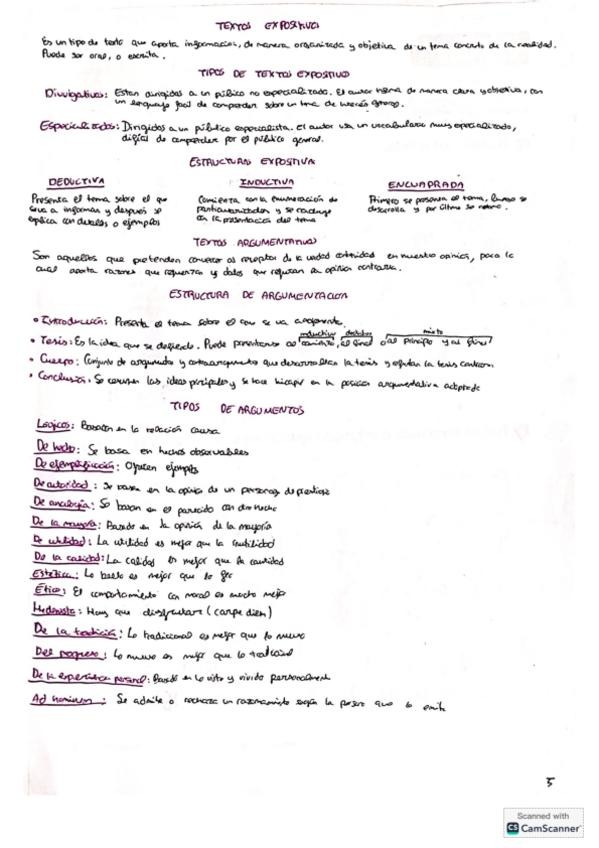 TEXTOS EXPOSITIVOS
Es un tipo de texto que aporta informacion, de manera organizada y objetiva de un tema concreto de la realidad.
Puede ser oral, o escrita.
TIPOS DE TEXTOS EXPOSITIVO
Divulgativos: Estan dirigidas a un público no especializado. El autor de manera clara y objetiva, con
un lenguaje facil de comprender sobre un tema de interés
Especializados: Dirigidos a un público especialista. El autor usa un vocabulario muy especializado,
dificil de comprender por el público general.
ESTRUCTURAS EXPOSITIVA
DEDUCTIVA INDUCTIVA ENCUADRADA
Presenta el tema sobre el que Comienza con la enumeración de Primero se presenta el tema, luego se
se va a informar y después se particularidades y se concluye desarrolla y por último se
explica con detalles o ejemplos con la presentación del tema
TEXTOS ARGUMENTATIVOS
Son aquellos que pretenden convencer al receptor de la en nuestra opinión, para lo
cual aporta razones que y datos que refutan la opinión contraria.
ESTRUCTURA DE ARGUMENTACION
inductiva deductiva mixto
• Introducción: Presenta el tema sobre el que se va a
• Tesis: Es la idea que se defiende. Puede al comienzo, al final o al principio y al final
• Cuerpo: Conjunto de argumentos y contraargumentos que desarrollan la tesis y refutan la tesis contraria
• Conclusión: Se las ideas principales y se hace hincapié en la posición argumentativa adoptada
TIPOS DE ARGUMENTOS
Lógicos: Basados en la relación causa
De hecho: Se basa en hechos observables
De ejemplificación: Ofrecen ejemplos
De autoridad: Se basa en la opinión de un personaje de prestigio
De analogía: Se basan en el parecido con otro hecho
De la mayoría: Basado en la opinión de la mayoría
De utilidad: La utilidad es mejor que la inutilidad
De la calidad: La calidad es mejor que la cantidad
Estética: Lo bello es mejor que lo feo
Ético: El comportamiento con moral es mucho mejor
Hedonista: Hay que disfrutar (carpe diem)
De la tradición: Lo tradicional es mejor que lo nuevo
Del progreso: Lo nuevo es mejor que lo tradicional
De la experiencia personal: Basado en lo visto y vivido personalmente
Ad hominem: Se admite o rechaza un razonamiento según la persona que lo emite
5
Scanned with
CS CamScanner